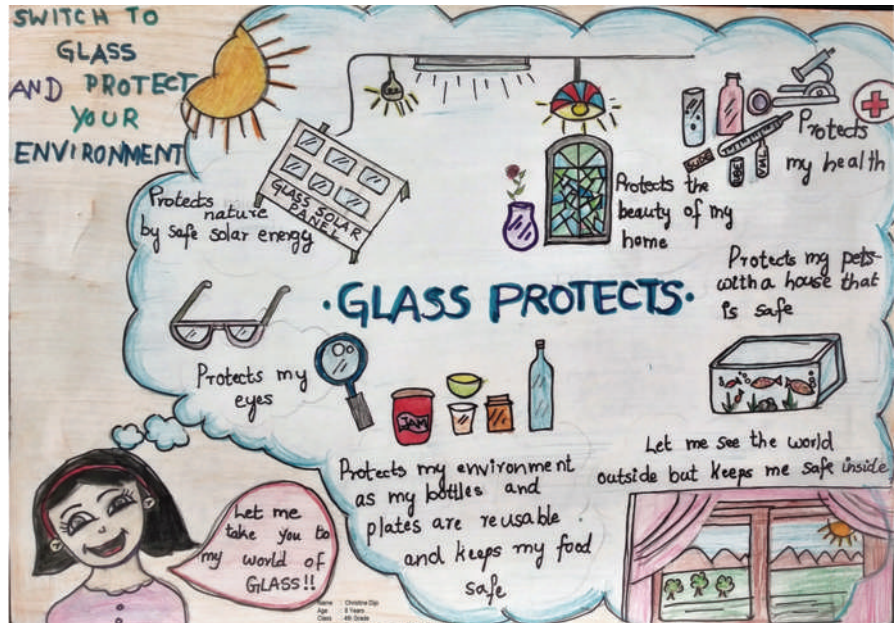 SWITCH TO
GLASS
AND PROTECT
YOUR
ENVIRONMENT
Protects
nature
by safe solar energy
GLASS SOLAR
PANEL
Protects the
beauty of my
home
Protects
my health
Protects my pets
with a house that
is safe
• GLASS PROTECTS •
Protects my
eyes
JAM
Protects my environment
as my bottles and
plates are reusable
and keeps my food
safe
Let me see the world
outside but keeps me safe inside
Let me
take you to
my world of
GLASS!!
Name : Christina Dijo
Age : 9 Years
Class : 4th Grade